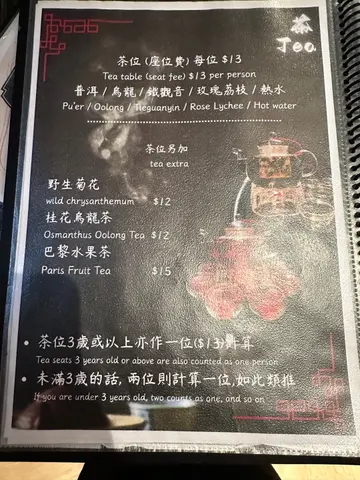 茶
Tea
茶位 (座位費) 每位 $13
Tea table (seat fee) $13 per person
普洱 / 烏龍 / 鐵觀音 / 玫瑰荔枝 / 熱水
Pu'er / Oolong / Tieguanyin / Rose Lychee / Hot water
茶位另加
tea extra
野生菊花
wild chrysanthemum $12
桂花烏龍茶
Osmanthus Oolong Tea $12
巴黎水果茶
Paris Fruit Tea $15
• 茶位3歲或以上亦作一位($13)計算
Tea seats 3 years old or above are also counted as one person
• 未滿3歲的話, 兩位則計算一位,如此類推
If you are under 3 years old, two counts as one, and so on